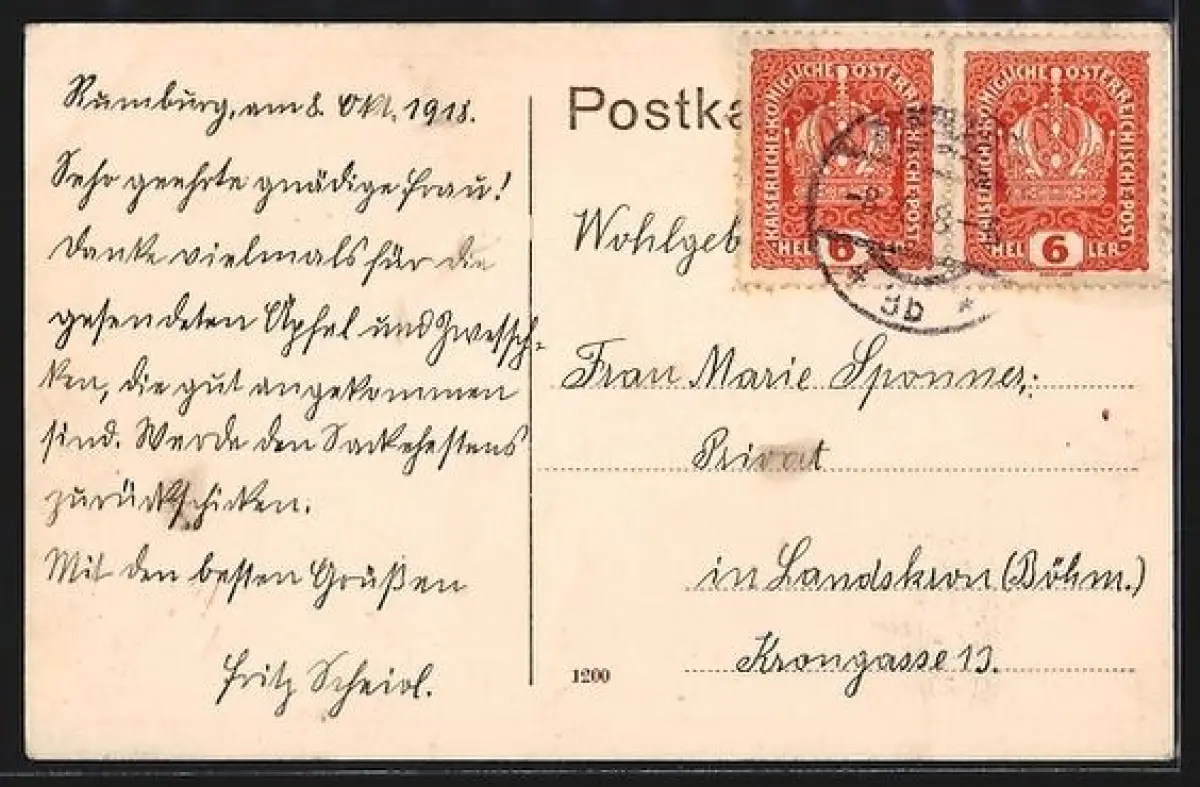 Rumburg, am 8. Okt. 1918.
Sehr geehrte gnädige Frau!
Danke vielmals für die
gesendeten Äpfel und Zwetsch-
ken, die gut angekommen
sind. Werde den Sack ehestens
zurückschicken.
Mit den besten Grüßen
Fritz
Postka
Wohlgeb
Frau Marie Sponner,:
Privat
in Landskron (Böhm.)
Krongasse 13.
1200
KAISERLICHE·KÖNIGLICHE·ÖSTERREICHISCHE·POST
HEL 6 LER
KAISERLICHE·KÖNIGLICHE·ÖSTERREICHISCHE·POST
HEL 6 LER